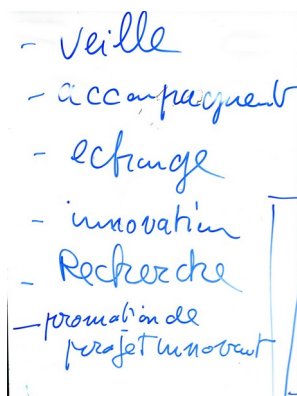 - veille
- accompagnement
- echange
- innovation
- Recherche
- promotion de
projet innovant